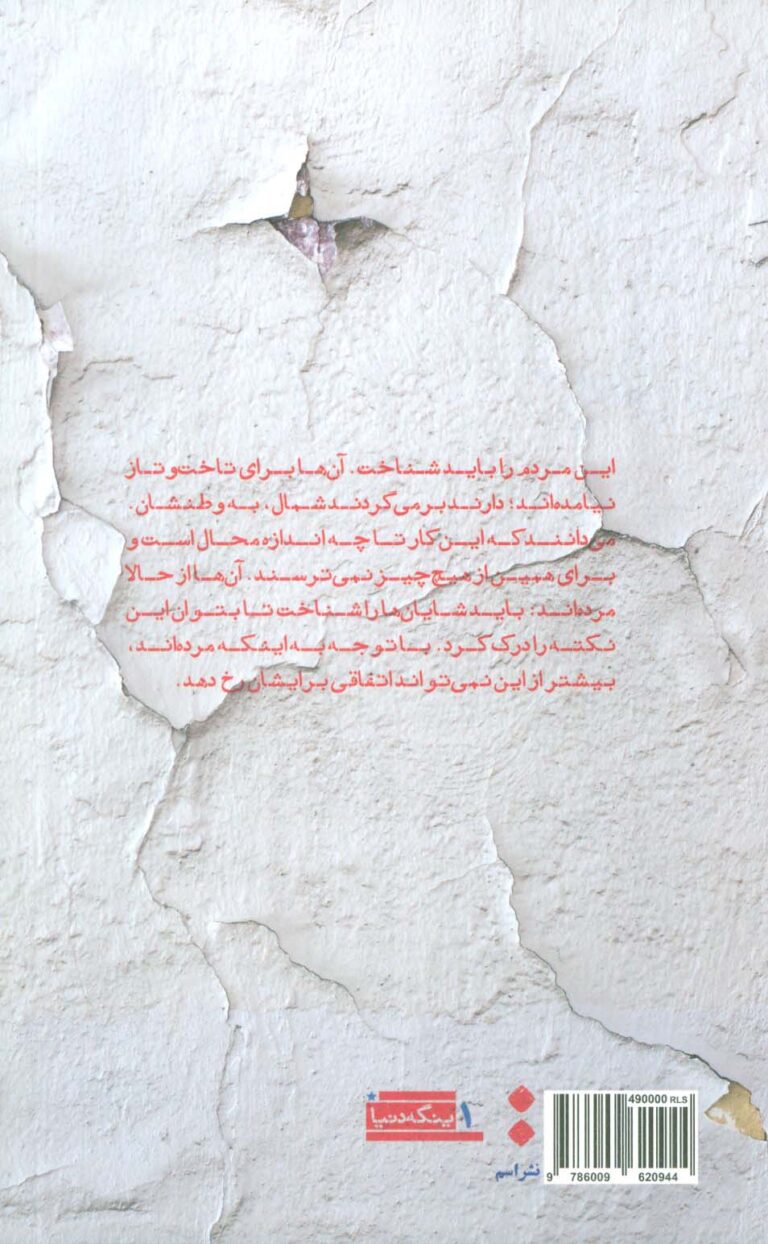 این مردم را باید شناخت. آن‌ها برای تاخت‌وتاز
نیامده‌اند؛ دارند برمی‌گردند شمال، به وطنشان.
می‌دانند که این کار تا چه اندازه محال است و
برای همین از هیچ چیز نمی‌ترسند. آن‌ها از حالا
مرده‌اند: باید شایان‌ها را شناخت تا بتوان این
نکته را درک کرد. با توجه به اینکه مرده‌اند،
بیشتر از این نمی‌تواند اتفاقی برایشان رخ دهد.
ینگه‌دنیا ۱
نشر اسم
490000 RLS
9 786009 620944